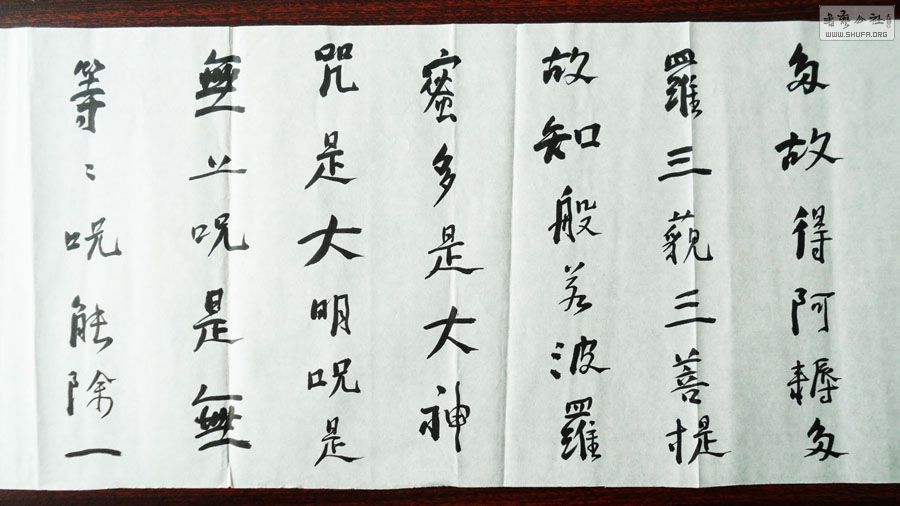 多故得阿耨多
羅三藐三菩提
故知般若波羅
蜜多是大神
咒是大明呪是
無上呪是無
等〻呪能除一
書藝公社
WWW.SHUFA.ORG